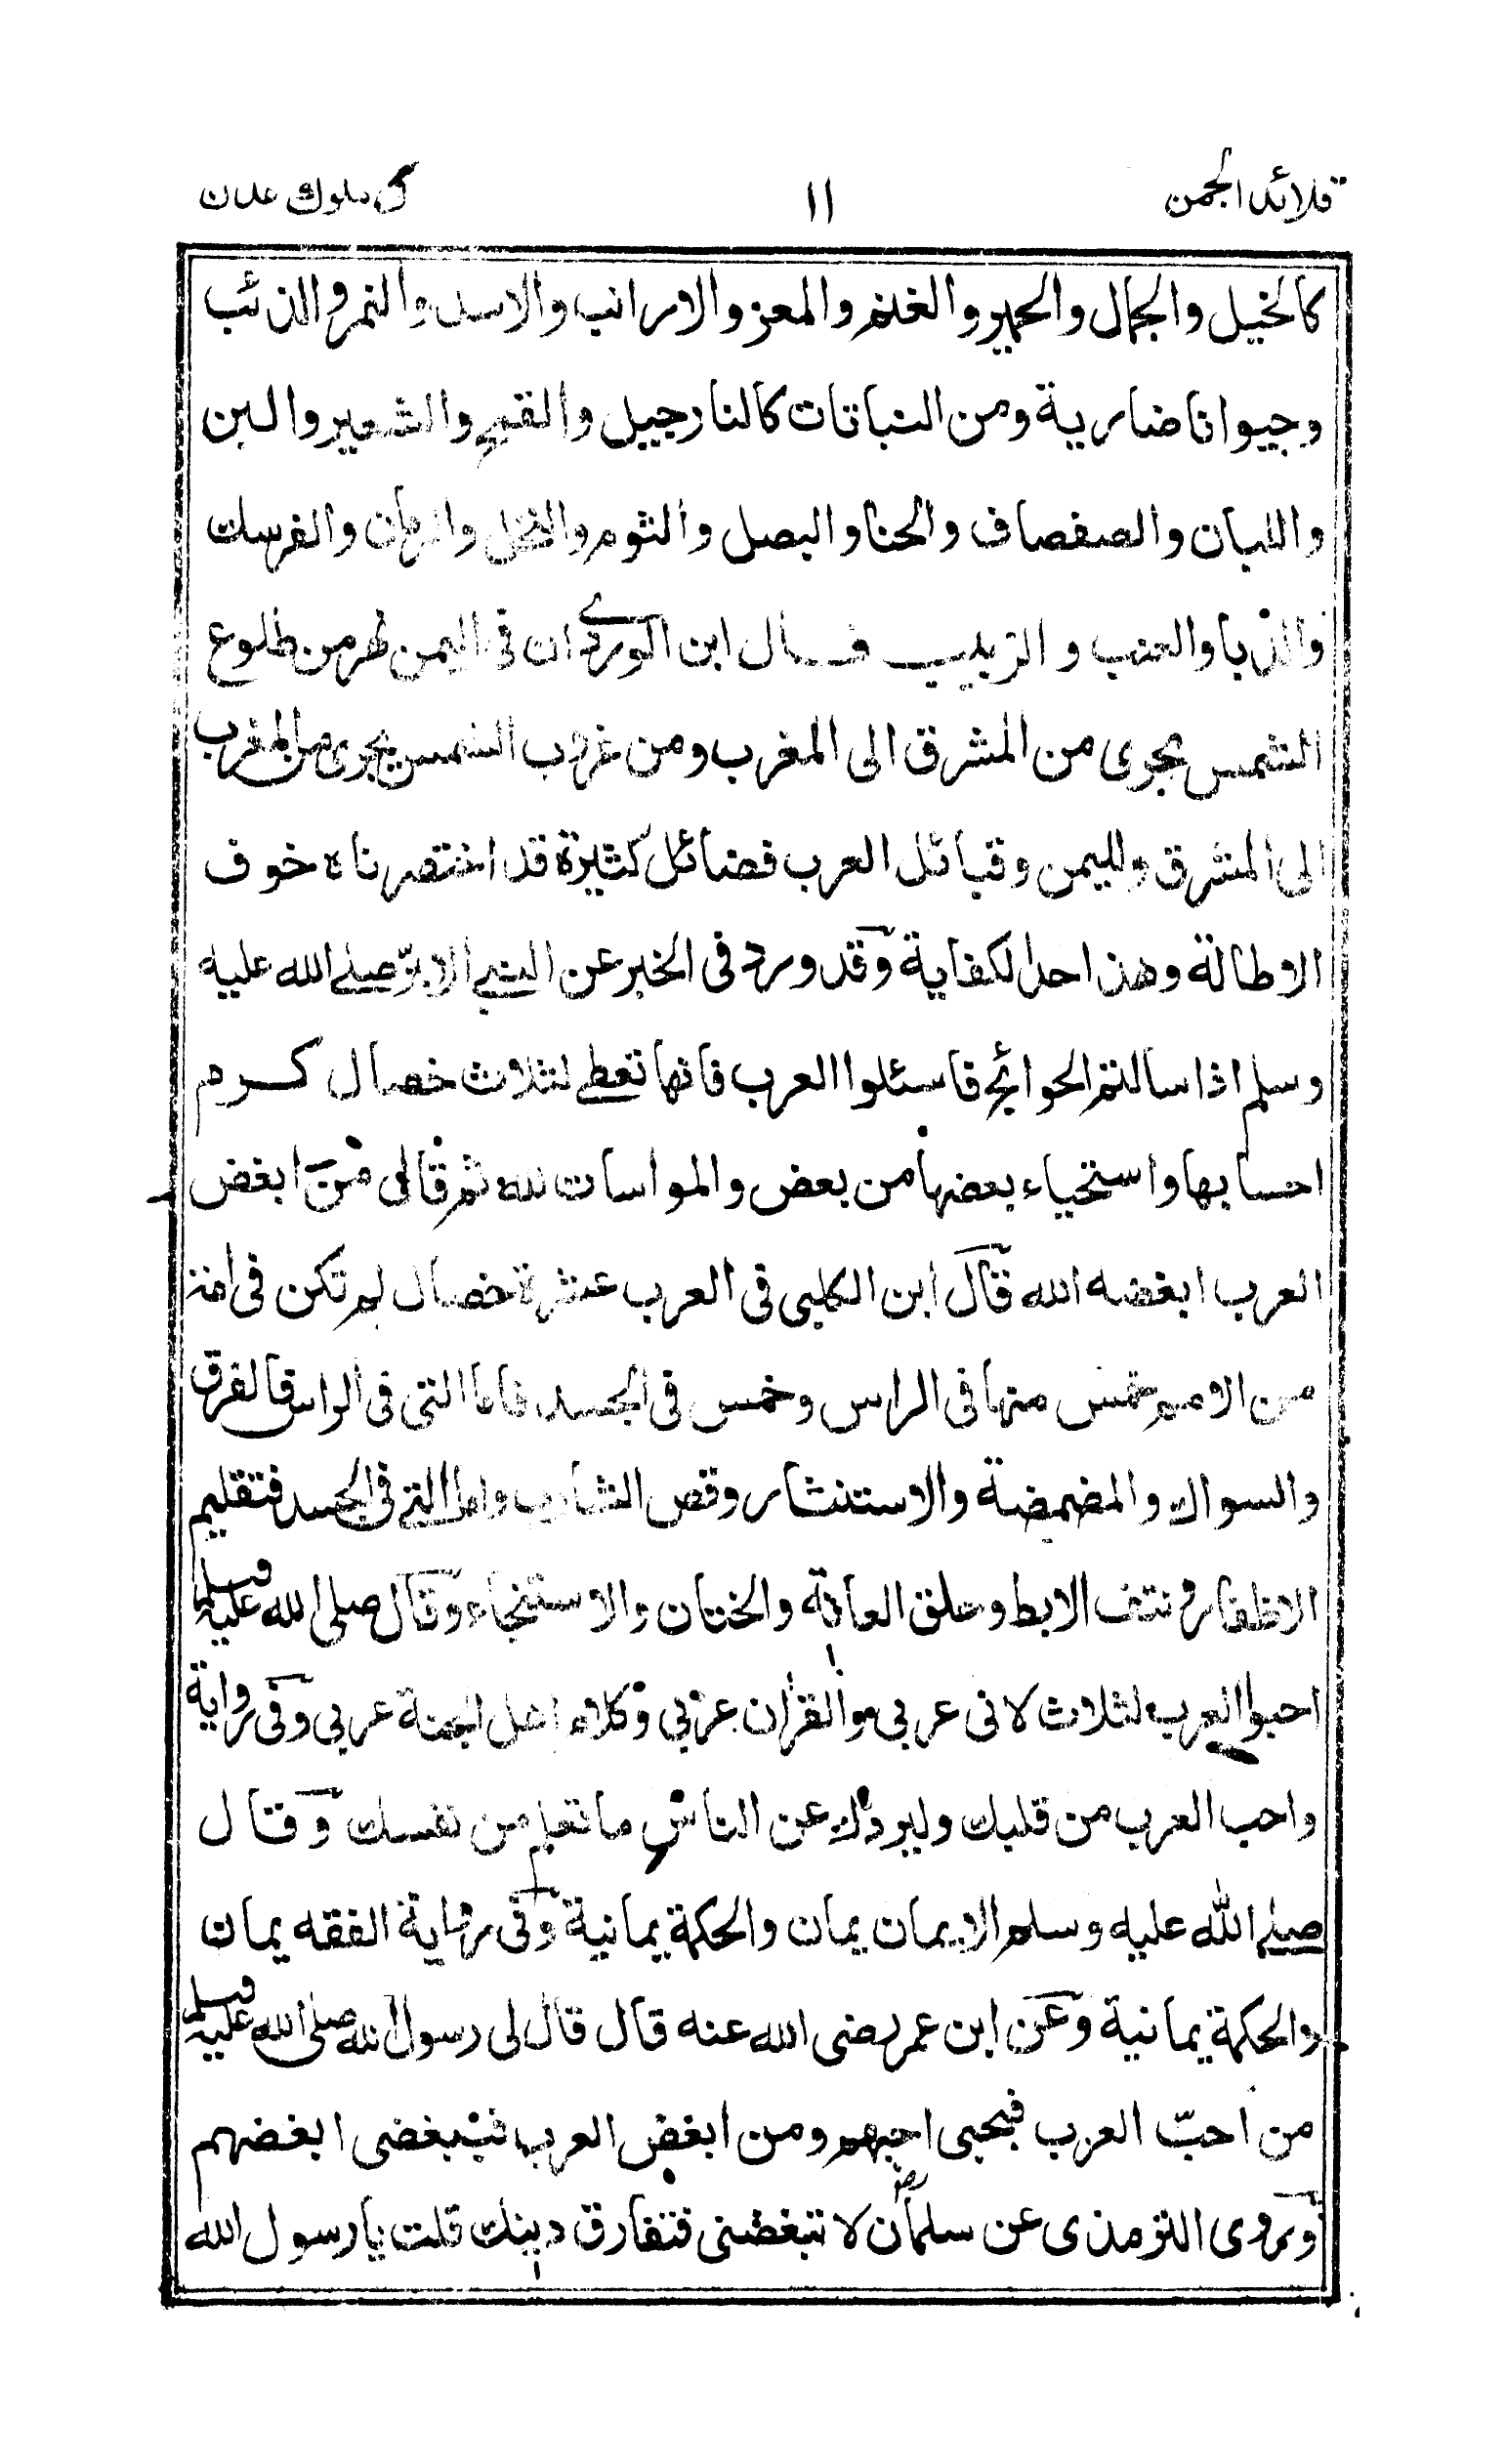 قلائد الجمن
١١
ملوك عدن
كالخيل والجمال والحمير والغنم والمعز والارانب والاسد والنمر والذئب
وحيوانا ضارية ومن النباتات كالنارجيل والقمح والشعير والبن
واللبان والصفصاف والحنا والبصل والثوم والنخل والرمان والفرسك
والذبا والعنب والزبيب قـــال ابن الوردى ان فى اليمن نهر من طلوع
الشمس يجرى من المشرق الى المغرب ومن غروب الشمس يجرى من المغرب
الى المشرق ولليمن وقبائل العرب فضائل كثيرة قد اختصرناه خوف
الاطالة وهذا حد الكفاية وقد ورد فى الخبر عن النبي الابرّ صلى الله عليه
وسلم اذا سالتم الحوائج فاسئلوا العرب فانها تعطى لثلاث خصال كـــرم
احسابها واستحياء بعضها من بعض والمواسات لله ثم قال من ابغض
العرب ابغضه الله قال ابن الكلبى فى العرب عشرة خصال لم تكن فى امة
من الامم خمس منها فى الراس وخمس فى الجسد فاما التى فى الراس فالفرق
والسواك والمضمضة والاستنثار وقص الشارب واما التى فى الجسد فتقليم
الاظفار ونتف الابط وحلق العانة والختان والاستنجاء وقال صلى الله عليه وسلم
احبوا العرب لثلاث لانى عربى والقران عربي وكلام اهل الجنة عربى وفى رواية
واحب العرب من قلبك وليردك عن الناس ما تعلم من نفسك وقـــال
صلى الله عليه وسلم الايمان يمان والحكمة يمانية وفى رواية الفقه يمان
والحكمة يمانية وعن ابن عمر رضى الله عنه قال قال لى رسول الله صلى الله عليه وسلم
من احبّ العرب فبحبى احبهم ومن ابغض العرب فببغضى ابغضهم
وروى الترمذى عن سلمان رض لا تبغضنى فتفارق دينك قلت يا رسول الله